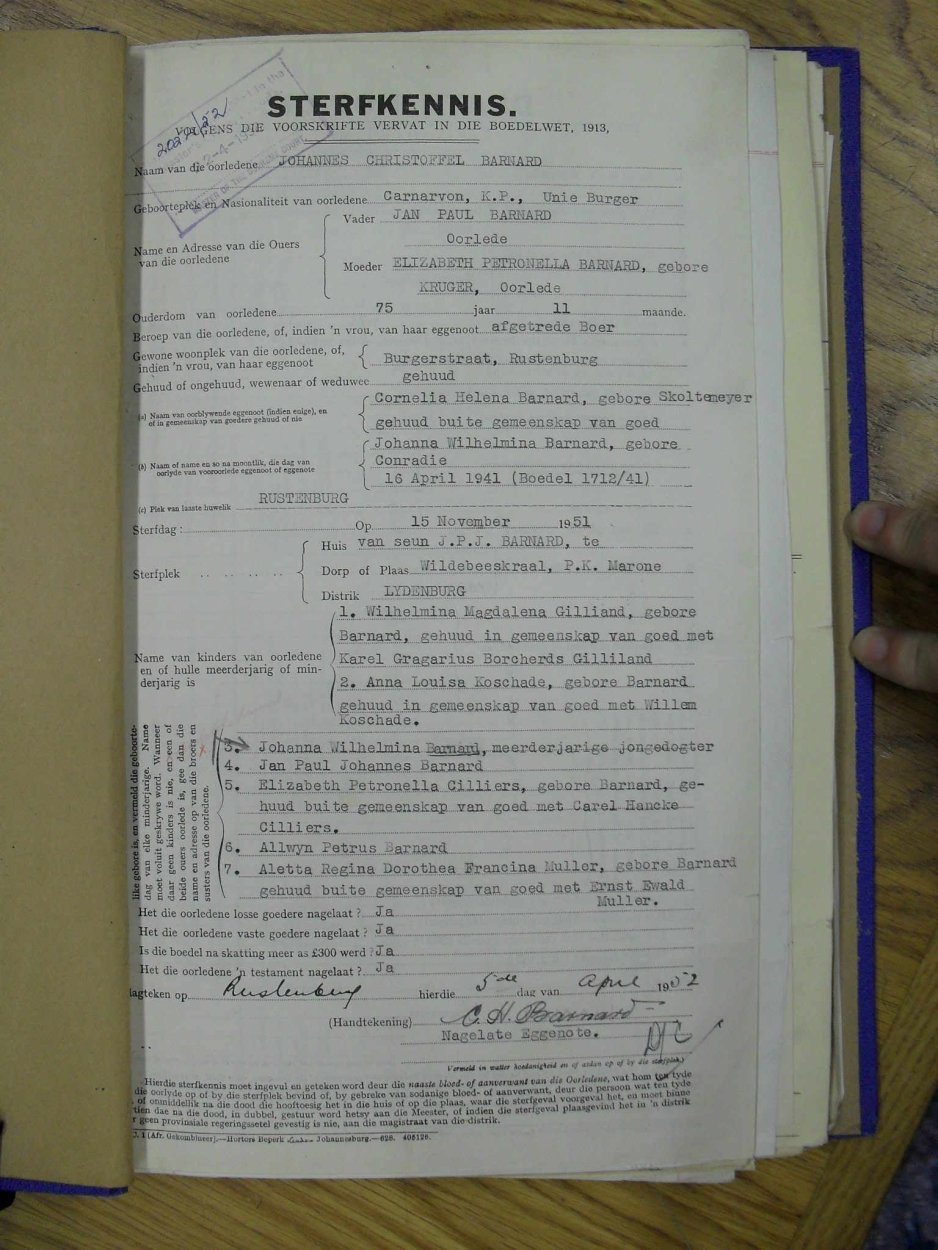 2022/52
STERFKENNIS.
VOLGENS DIE VOORSKRIFTE VERVAT IN DIE BOEDELWET, 1913,
Naam van die oorledene JOHANNES CHRISTOFFEL BARNARD
Geboorteplek en Nasionaliteit van oorledene Carnarvon, K.P., Unie Burger
Name en Adresse van die Ouers van die oorledene
Vader JAN PAUL BARNARD
Oorlede
Moeder ELIZABETH PETRONELLA BARNARD, gebore
KRUGER, Oorlede
Ouderdom van oorledene 75 jaar 11 maande.
Beroep van die oorledene, of, indien 'n vrou, van haar eggenoot afgetrede Boer
Gewone woonplek van die oorledene, of,
indien 'n vrou, van haar eggenoot
Burgerstraat, Rustenburg
Gehuud of ongehuud, wewenaar of weduwee gehuud
(a) Naam van oorblywende eggenoot (indien enige), en
of in gemeenskap van goedere gehuud of nie
Cornelia Helena Barnard, gebore Skoltemeyer
gehuud buite gemeenskap van goed
(b) Naam of name en so na moontlik, die dag van
oorlyde van vooroorlede eggenoot of eggenote
Johanna Wilhelmina Barnard, gebore
Conradie
16 April 1941 (Boedel 1712/41)
(c) Plek van laaste huwelik RUSTENBURG
Sterfdag: Op 15 November 1951
Sterfplek
Huis van seun J.P.J. BARNARD, te
Dorp of Plaas Wildebeeskraal, P.K. Marone
Distrik LYDENBURG
Name van kinders van oorledene
en of hulle meerderjarig of min-
derjarig is
1. Wilhelmina Magdalena Gilliand, gebore
Barnard, gehuud in gemeenskap van goed met
Karel Gragarius Borcherds Gilliland
2. Anna Louisa Koschade, gebore Barnard
gehuud in gemeenskap van goed met Willem
Koschade.
like gebore is, en vermeld die geboorte-
dag van elke minderjarige. Name
moet voluit geskrywe word. Wanneer
daar geen kinders is nie, en een of
beide ouers oorlede is, gee dan die
name en adresse op van die broers en
susters van die oorledene.
3. Johanna Wilhelmina Barnard, meerderjarige jongedogter
4. Jan Paul Johannes Barnard
5. Elizabeth Petronella Cilliers, gebore Barnard, ge-
huud buite gemeenskap van goed met Carel Hancke
Cilliers.
6. Allwyn Petrus Barnard
7. Aletta Regina Dorothea Francina Muller, gebore Barnard
gehuud buite gemeenskap van goed met Ernst Ewald
Muller.
Het die oorledene losse goedere nagelaat? Ja
Het die oorledene vaste goedere nagelaat? Ja
Is die boedel na skatting meer as £300 werd? Ja
Het die oorledene 'n testament nagelaat? Ja
agteken op Rustenburg hierdie 5de dag van April 1952
(Handtekening) C. H. Barnard
Nagelate Eggenote.
Vermeld in watter hoedanigheid en of ardan op of by die sterfplek)
Hierdie sterfkennis moet ingevul en geteken word deur die naaste bloed- of aanverwant van die Oorledene, wat hom ten tyde
die oorlyde op of by die sterfplek bevind of, by gebreke van sodanige bloed- of aanverwant, deur die persoon wat ten tyde
of onmiddellik na die dood die hooftoesig het in die huis of op die plaas, waar die sterfgeval voorgeval het, en moet binne
tien dae na die dood, in dubbel, gestuur word hetsy aan die Meester, of indien die sterfgeval plaasgevind het in 'n distrik
geen provinsiale regeringssetel gevestig is nie, aan die magistraat van die distrik.
J. 1 (Afr. Gekombineer).—Hortors Beperk Johannesburg.—626. 405126.